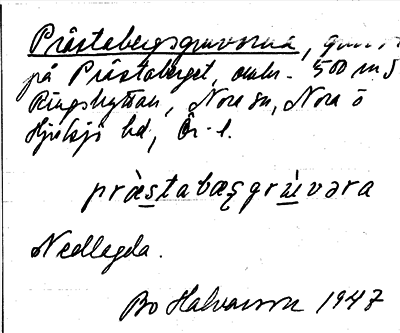 Prästabergsgruvorna, gruvor
på Prästaberget, omkr. 500 m S
Ringshyttan, Nora sn, Nora o
Hjulsjö hd, Ör. l.
prästabæʂgrùvəra
Nedlagda.
Bo Halvarsson 1947